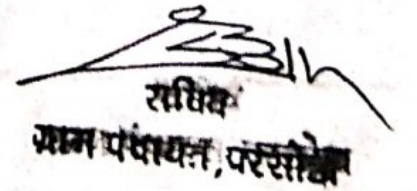 सचिव
ग्राम पंचायत, परसोडा